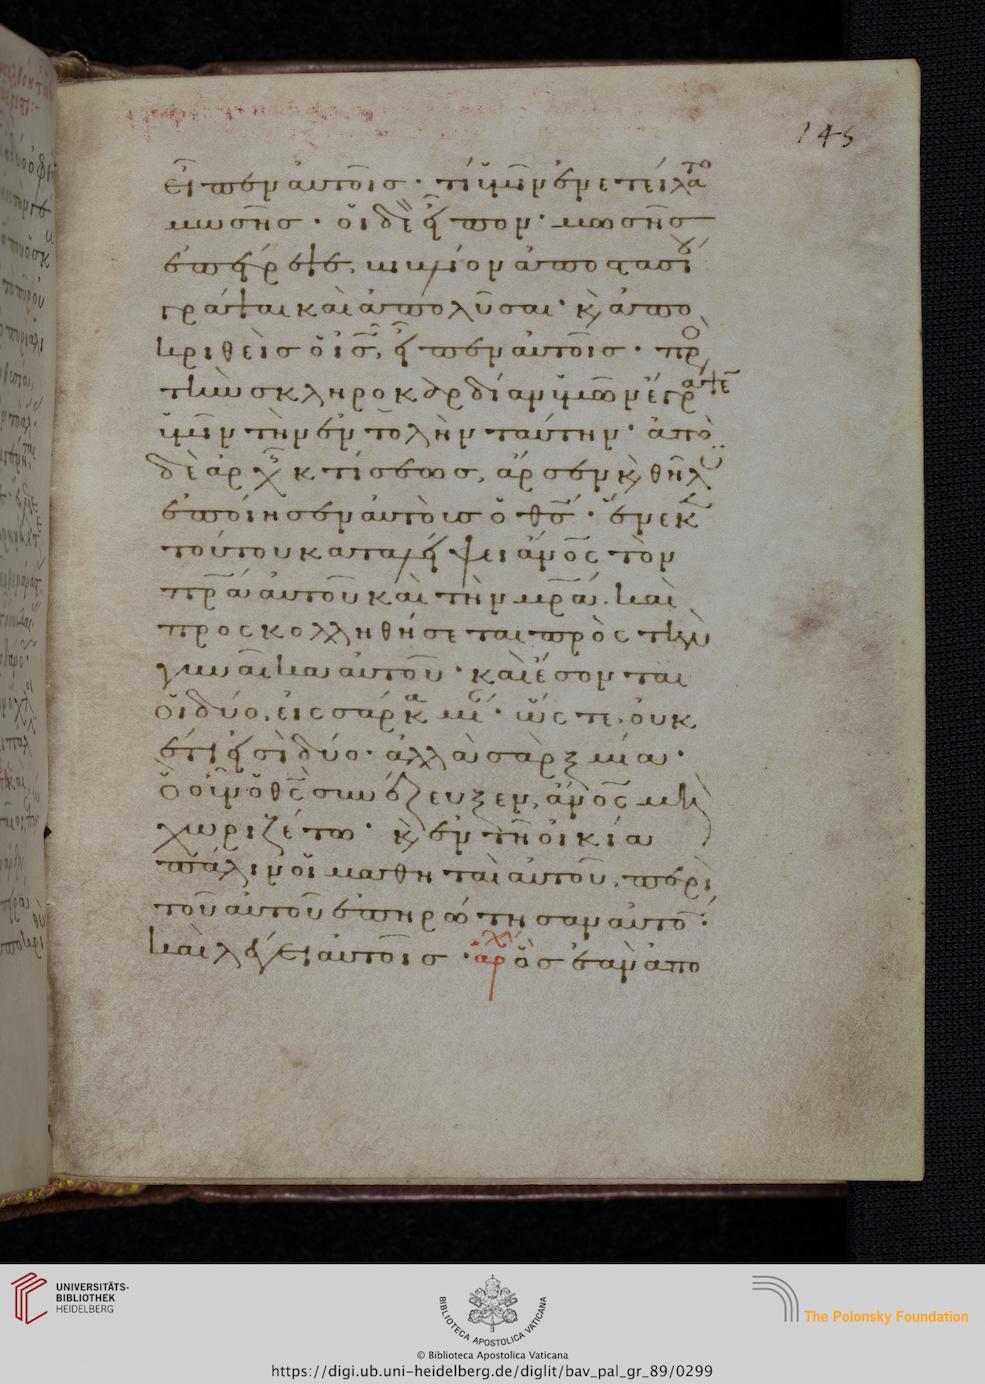 145
εἶπεν αὐτοῖς · τί ὑμῖν ἐνετείλατο
μωσῆς · οἱ δὲ εἶπον · μωσῆς
ἐπέτρεψε, βιβλίον ἀποστασίου
γράψαι καὶ ἀπολῦσαι · κ(αὶ) ἀπο
κριθεὶς ὁ ἰς, εἶπεν αὐτοῖς · πρὸ(ς)
τὴν σκληροκαρδίαν ὑμῶν ἔγραψε
ὑμῖν τὴν ἐντολὴν ταύτην · ἀπὸ
δὲ ἀρχῆς κτίσεως, ἄρσεν κ(αὶ) θῆλυ
ἐποίησεν αὐτοὺς ὁ θς · ἕνεκ
τούτου καταλείψει ἀνος τὸν
πρα αὐτοῦ καὶ τὴν μρα. καὶ
προσκολληθήσεται πρὸς τὴν
γυναῖκα αὐτοῦ · καὶ ἔσονται
οἱ δύο, εἰς σάρκα μί · ὥστε, οὐκ
ἔτι εἰσὶ δύο · ἀλλὰ σὰρξ μία ·
ὃ οὖν ὁ θς συνέζευξεν, ἀνος μὴ
χωριζέτω · κ(αὶ) ἐν τῆ οἰκία
πάλιν οἱ μαθηταὶ αὐτοῦ, περὶ
τοῦ αὐτοῦ ἐπηρώτησαν αὐτὸ ·
καὶ λέγει αὐτοῖς · ἀρχ ὃς ἐὰν ἀπο
UNIVERSITÄTS-
BIBLIOTHEK
HEIDELBERG
BIBLIOTECA APOSTOLICA VATICANA
The Polonsky Foundation
© Biblioteca Apostolica Vaticana
https://digi.ub.uni-heidelberg.de/diglit/bav_pal_gr_89/0299